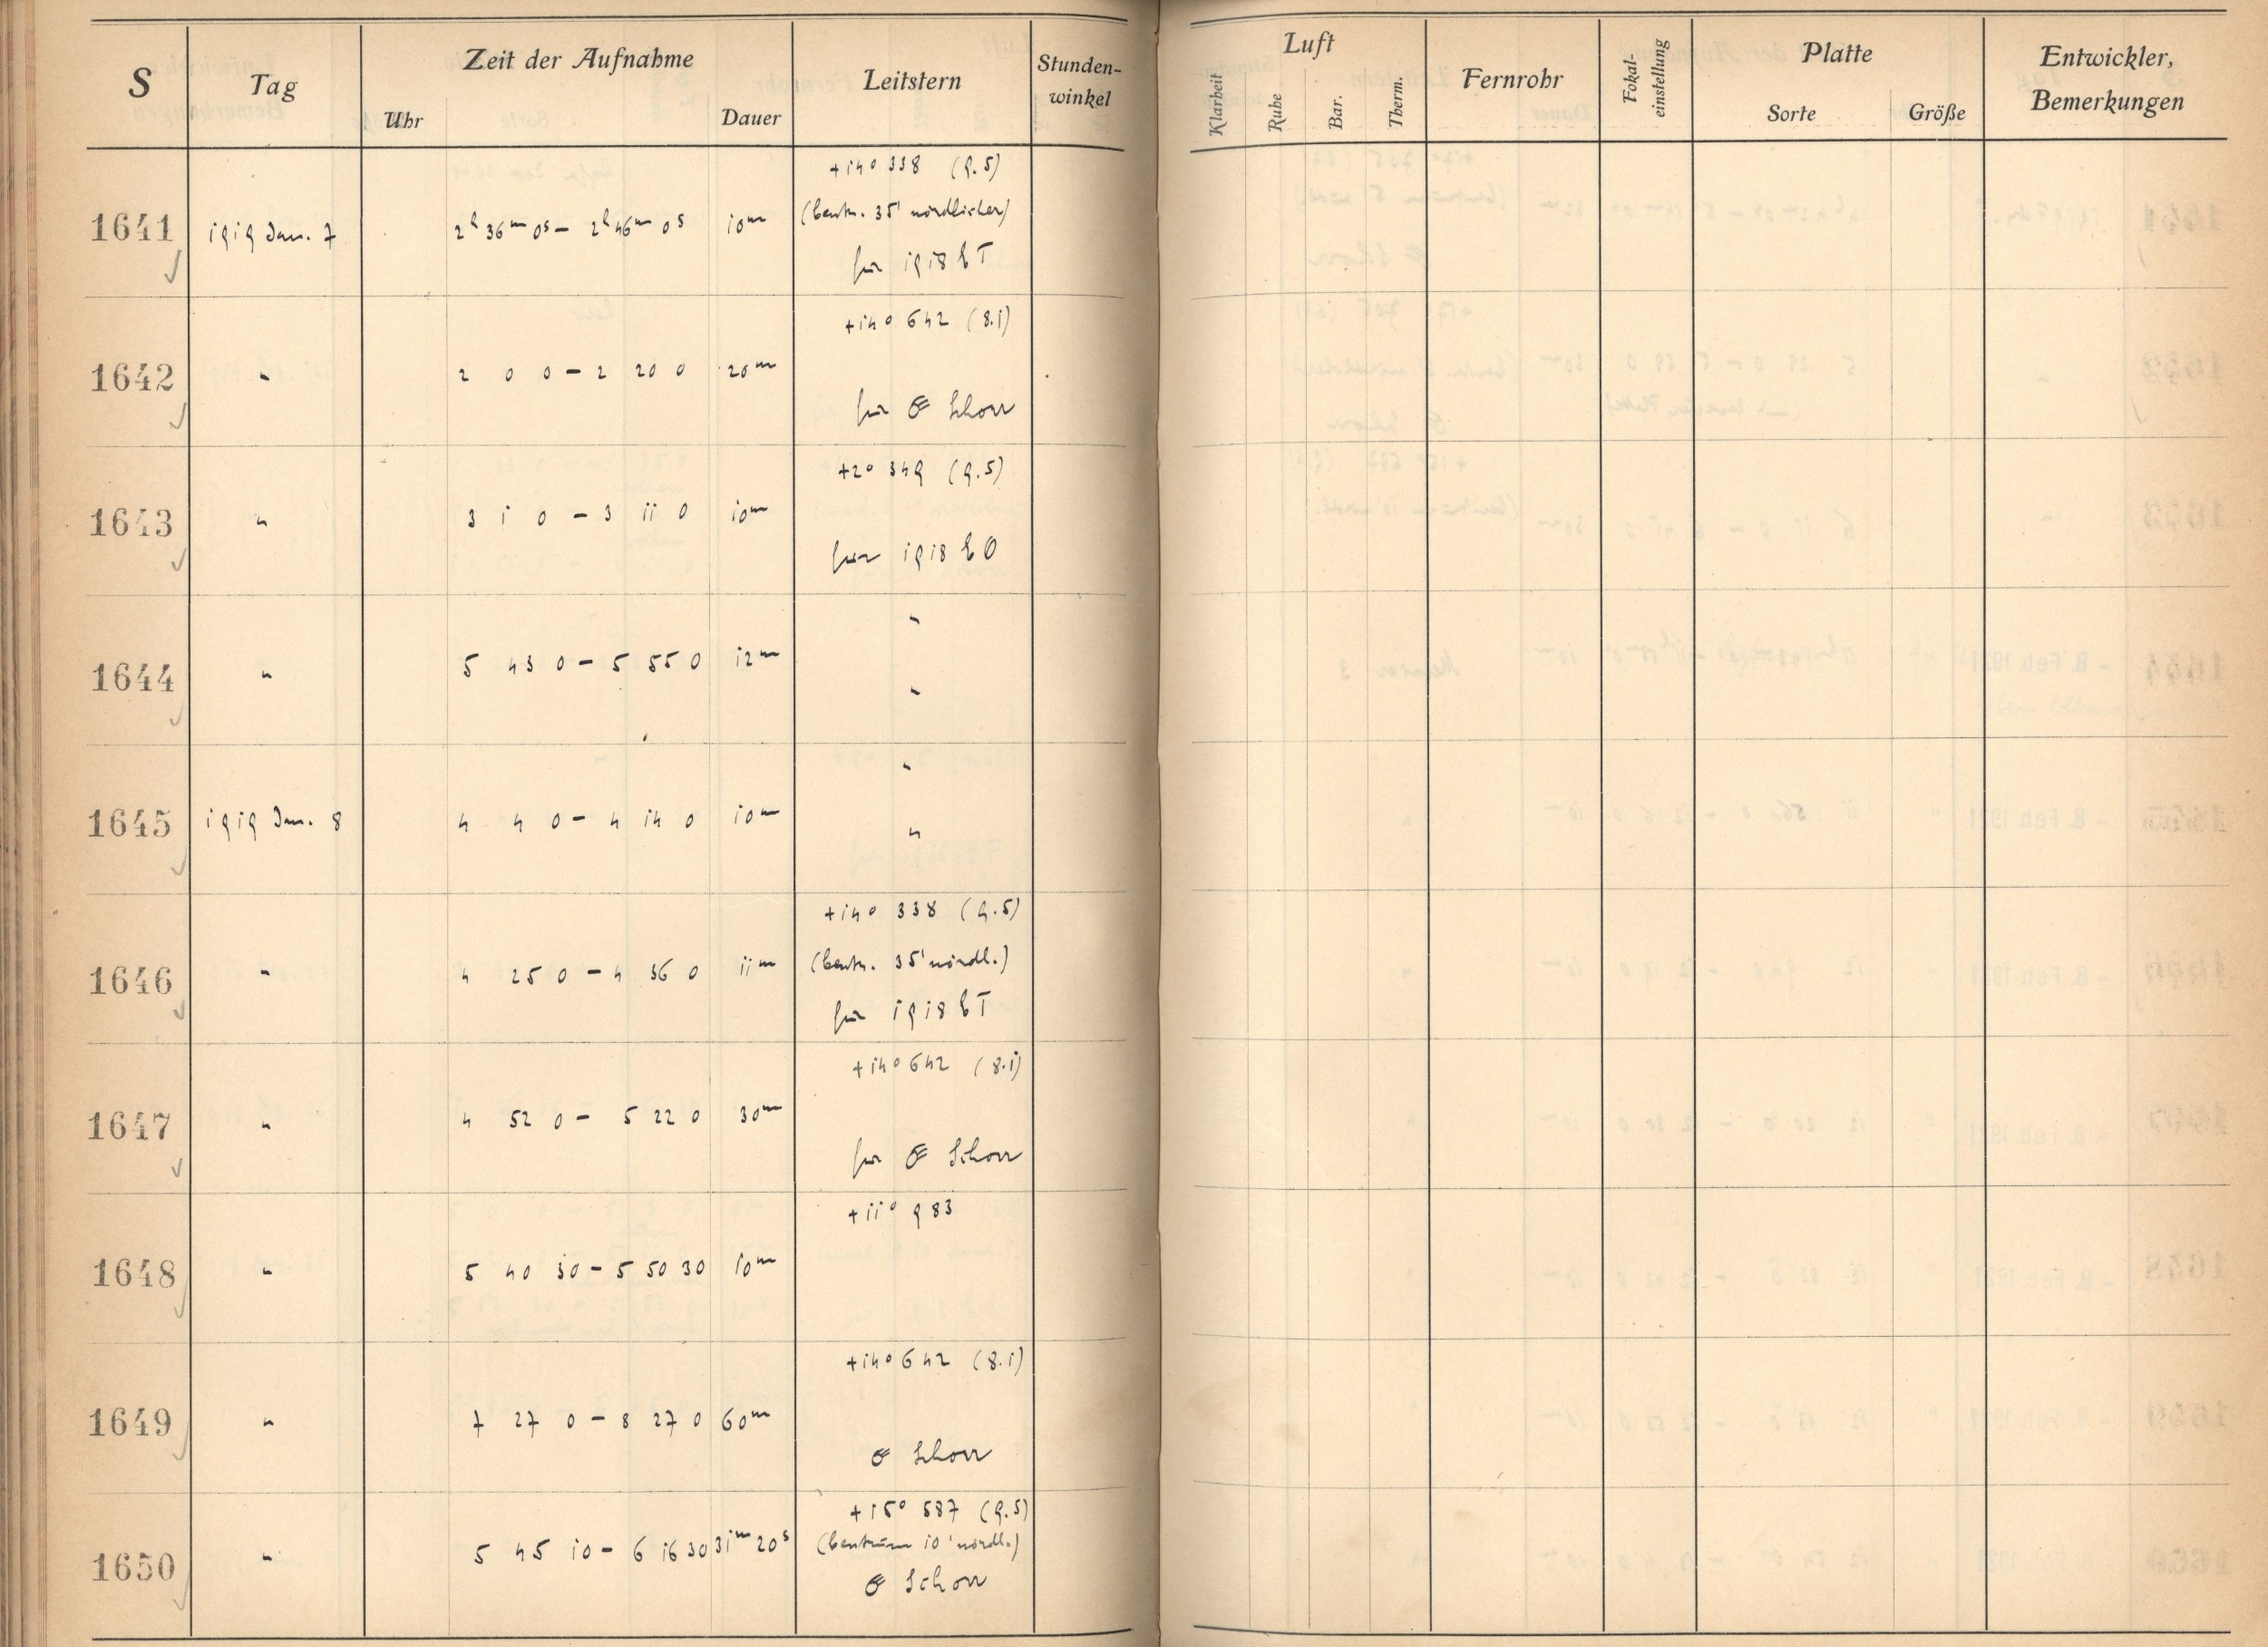 S Tag Zeit der Aufnahme Leitstern Stunden-winkel Luft Fernrohr Fokal-einstellung Platte Entwickler, Bemerkungen
Uhr Dauer Klarheit Ruhe Bar. Therm. Sorte Größe
+14° 338 (9.5)
1641 1919 Jan. 7 2h 36m 0s – 2h 46m 0s 10m (Centr. 35' nördlicher)
für 1918 ET
+14° 642 (8.1)
1642 " 2 0 0 – 2 20 0 20m
für Schorr
+2° 349 (9.5)
1643 " 3 1 0 – 3 11 0 10m
für 1918 EO
"
1644 " 5 43 0 – 5 55 0 12m
"
"
1645 1919 Jan. 8 4 4 0 – 4 14 0 10m
"
+14° 338 (9.5)
1646 " 4 25 0 – 4 36 0 11m (Centr. 35' nördl.)
für 1918 ET
+14° 642 (8.1)
1647 " 4 52 0 – 5 22 0 30m
für Schorr
+11° 983
1648 " 5 40 30 – 5 50 30 10m
+14° 642 (8.1)
1649 " 7 27 0 – 8 27 0 60m
Schorr
+15° 587 (9.5)
1650 " 5 45 10 – 6 16 30 31m 20s (Centrum 10' nördl.)
Schorr